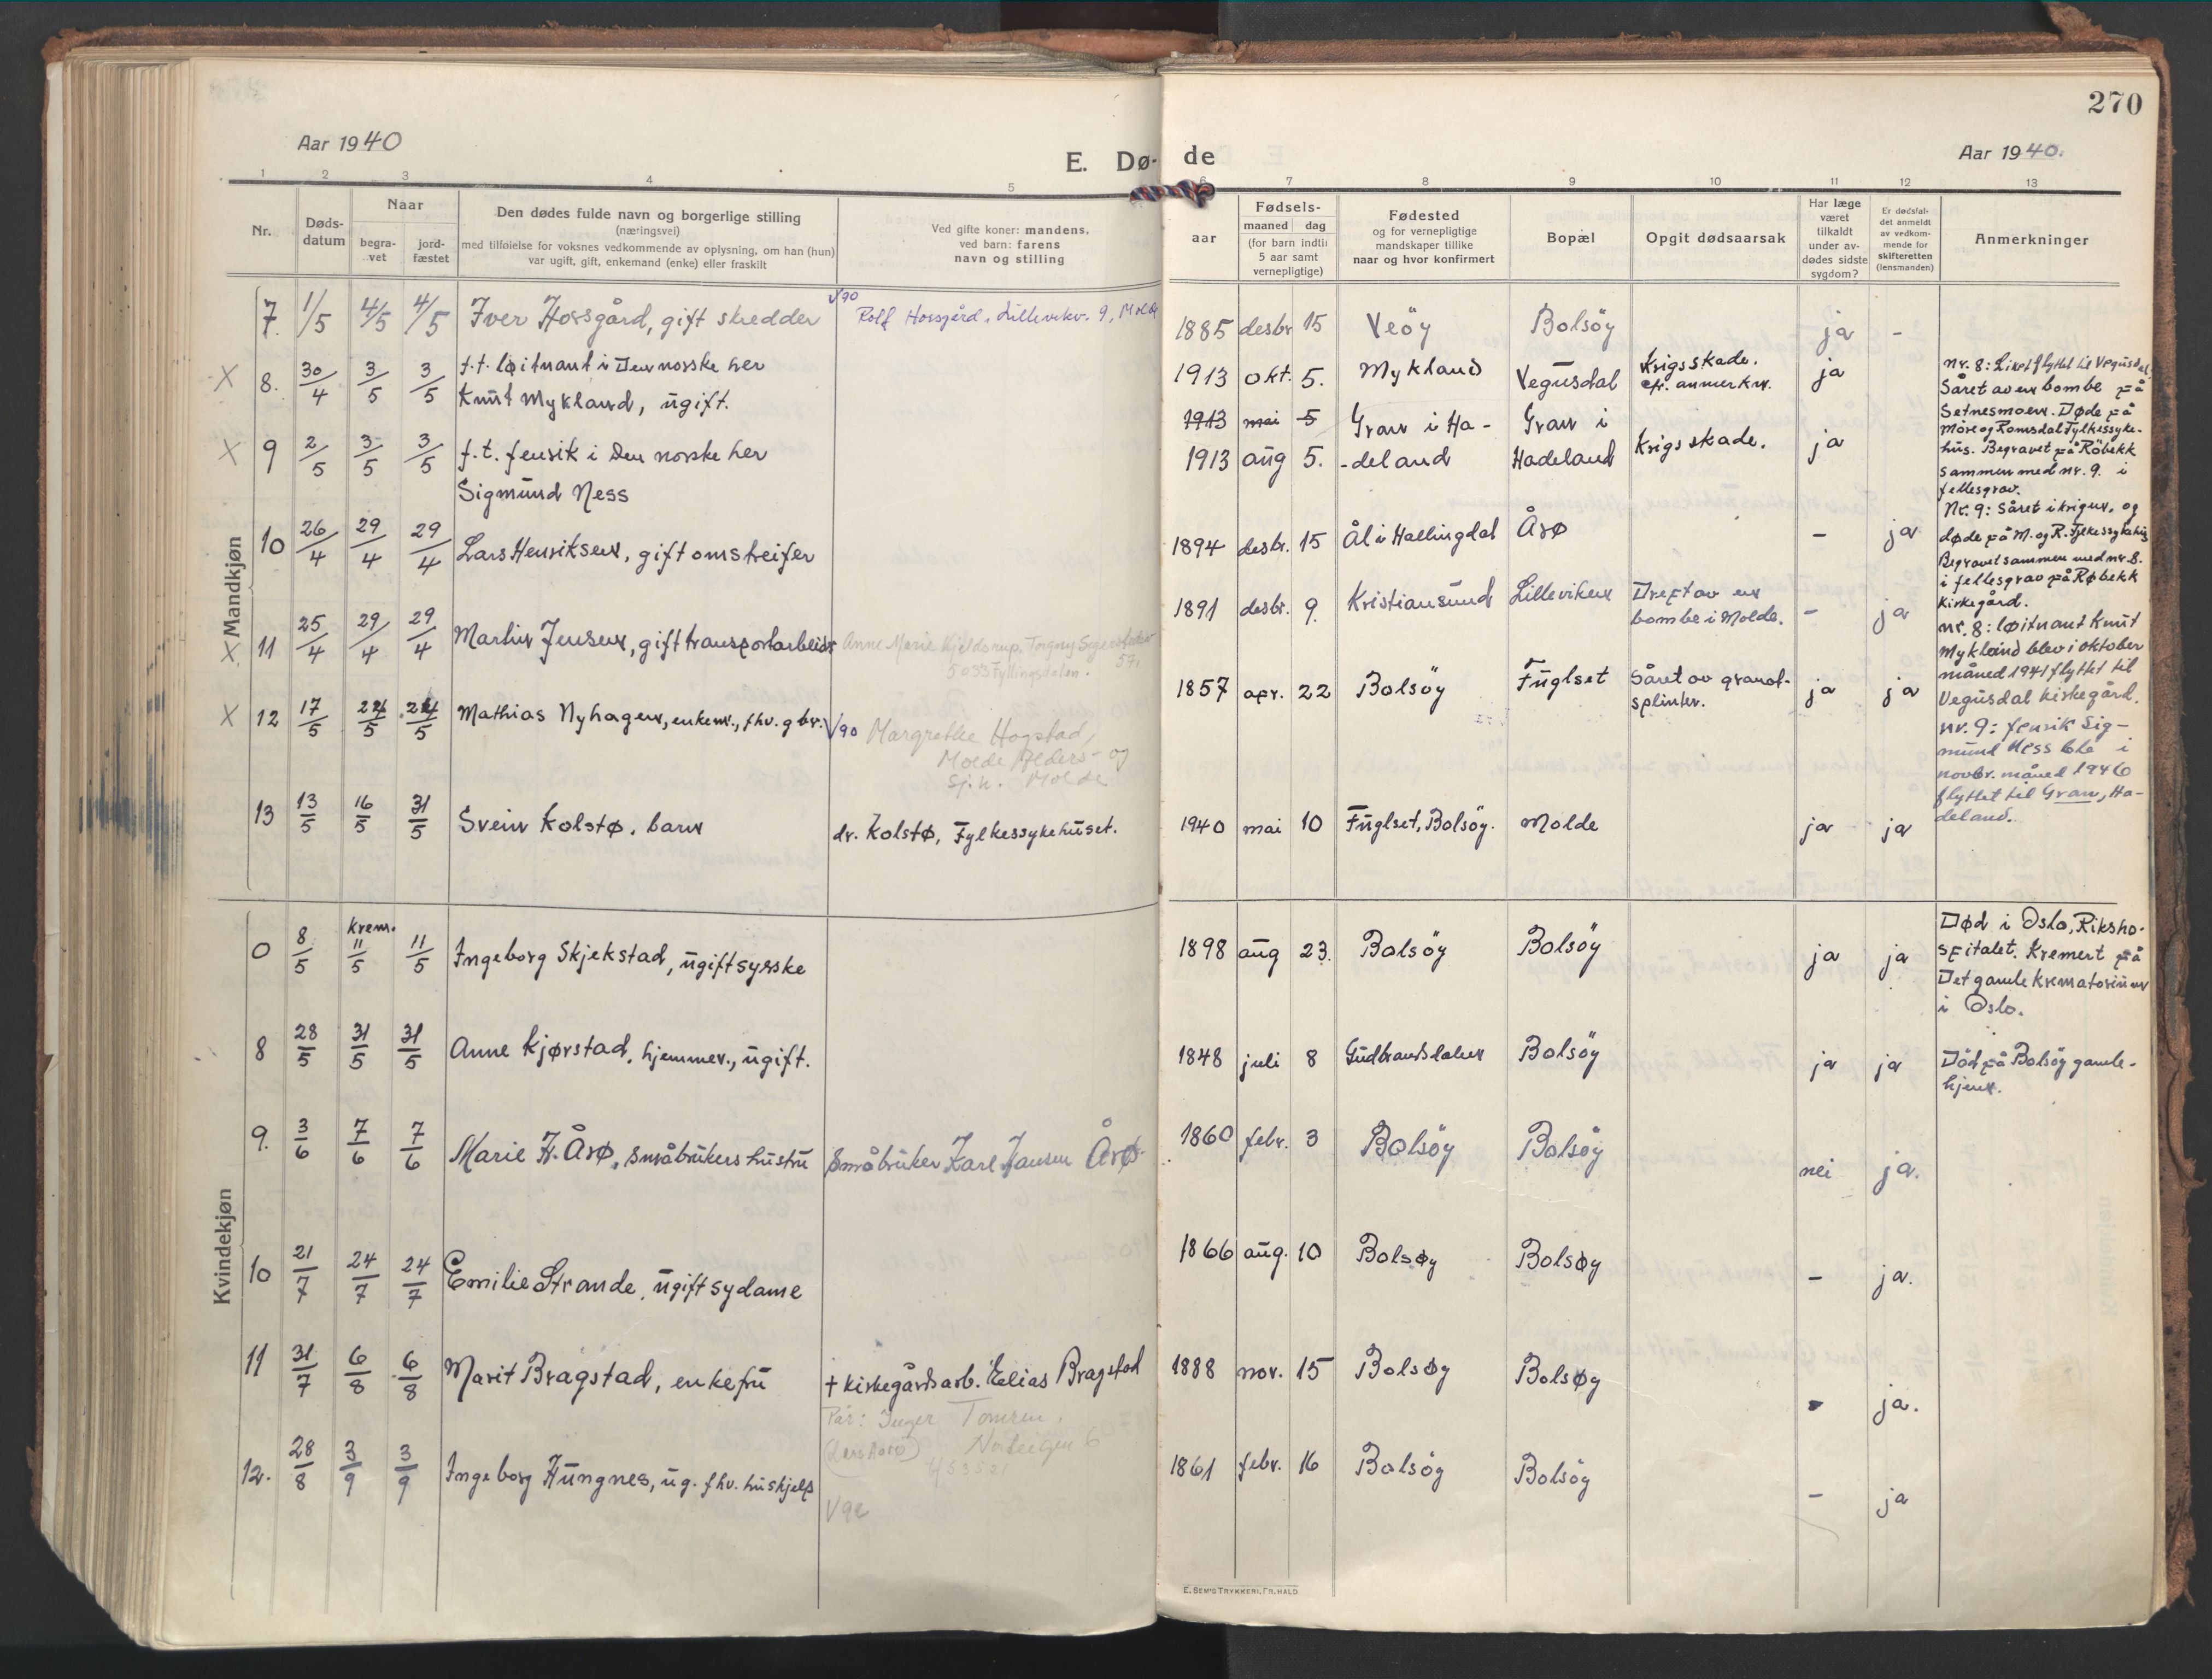 270
Aar 1940
E. Dø- de
Aar 1940.
1 2 3 4 5 6 7 8 9 10 11 12 13
Nr.
Døds-
datum
Naar
begra-
vet
jord-
fæstet
Den dødes fulde navn og borgerlige stilling
(næringsvei)
med tilføielse for voksnes vedkommende av oplysning, om han (hun)
var ugift, gift, enkemand (enke) eller fraskilt
Ved gifte koner: mandens,
ved barn: farens
navn og stilling
Fødsels-
aar
maaned dag
(for barn indtil
5 aar samt
vernepligtige)
Fødested
og for vernepligtige
mandskaper tillike
naar og hvor konfirmert
Bopæl
Opgit dødsaarsak
Har læge
været
tilkaldt
under av-
dødes sidste
sygdom?
Er dødsfal-
det anmeldt
av vedkom-
mende for
skifteretten
(lensmanden)
Anmerkninger
Mandkjøn
7. 1/5 4/5 4/5 Iver Horsgård, gift skredder V90 Rolf Horsgård, Lillevikv. 9, Molde 1885 desbr 15 Veöy Bolsöy ja -
X 8. 30/4 3/5 3/5 f.t. løitnant i Den norske hær
Knut Mykland, ugift. 1913 okt. 5. Mykland Vegusdal Krigsskade.
cfr. anmerkn. ja
1913 mai 5
X 9 2/5 3/5 3/5 f.t. fenrik i Den norske hær
Sigmund Ness 1913 aug 5. Gran i Ha-
-deland Gran i
Hadeland Krigsskade. ja
10 26/4 29/4 29/4 Lars Henriksen, gift omstreifer 1894 desbr. 15 Ål i Hallingdal Årø - ja
X 11 25/4 29/4 29/4 Martin Jensen, gift transportarbeider Anne Marie Kjeldsrup, Torgny Segerstedsv
57,
5033 Fyllingsdalen. 1891 desbr. 9. Kristiansund Lilleviken Drept av en
bombe i Molde. - ja
X 12 17/5 24/5 24/5 Mathias Nyhagen, enkem., fhv. gbr. V90 Margrethe Hogstad,
Molde Alders- og
Sj.h. Molde 1857 apr. 22 Bolsöy Fuglset Såret av granat-
splinter. ja ja
13 13/5 16/5 31/5 Svein Kolstø, barn dr. Kolstø, Fylkessykehuset. 1940 mai 10 Fuglset, Bolsöy. Molde ja ja
nr. 8: Liket flyttet til Vegusdal
Såret av en bombe på
Setnesmoen. Døde på
Møre og Romsdal Fylkessyke-
hus. Begravet på Röbekk
sammen med nr. 9. i
fellesgrav.
Nr. 9: Såret i krigen, og
døde på M. og R. Fylkessykehus
Begravet sammen med nr. 8.
i fellesgrav på Røbekk
Kirkegård.
nr. 8: løitnant Knut
Mykland blev i oktober
måned 1941 flyttet til
Vegusdal kirkegård.
nr. 9: fenrik Sig-
mund Ness ble i
novbr. måned 1946
flyttet til Gran, Ha-
deland.
Kvindekjøn
0 8/5 Krem. 11/5 11/5 Ingeborg Skjekstad, ugift syerske 1898 aug 23. Bolsöy Bolsöy ja ja Död i Oslo, Riksho-
spitalet. Kremert på
Det gamle Krematorium
i Oslo.
8 28/5 31/5 31/5 Anne Kjørstad, hjemmev., ugift. 1848 juli 8 Gudbrandsdalen Bolsöy ja ja Död på Bolsöy gamle-
hjem.
9. 3/6 7/6 7/6 Marie H. Årø, småbrukers hustru Småbruker Karl Hansen Årø. 1860 febr. 3 Bolsöy Bolsöy nei ja.
10 21/7 24/7 24/7 Emilie Strande, ugift sydame 1866 aug. 10 Bolsøy Bolsøy - ja.
11 31/7 6/8 6/8 Marit Bragstad, enkefru + kirkegårdsarb. Elias Bragstad
Pår: Inger Tomren, 1888 nov. 15 Bolsøy Bolsøy - ja.
12. 28/8 3/9 3/9 Ingeborg Hungnes, ug. fhv. hushjelp V90 1861 febr. 16 Bolsöy Bolsöy - ja
E. SEM'S TRYKKERI, FR.HALD